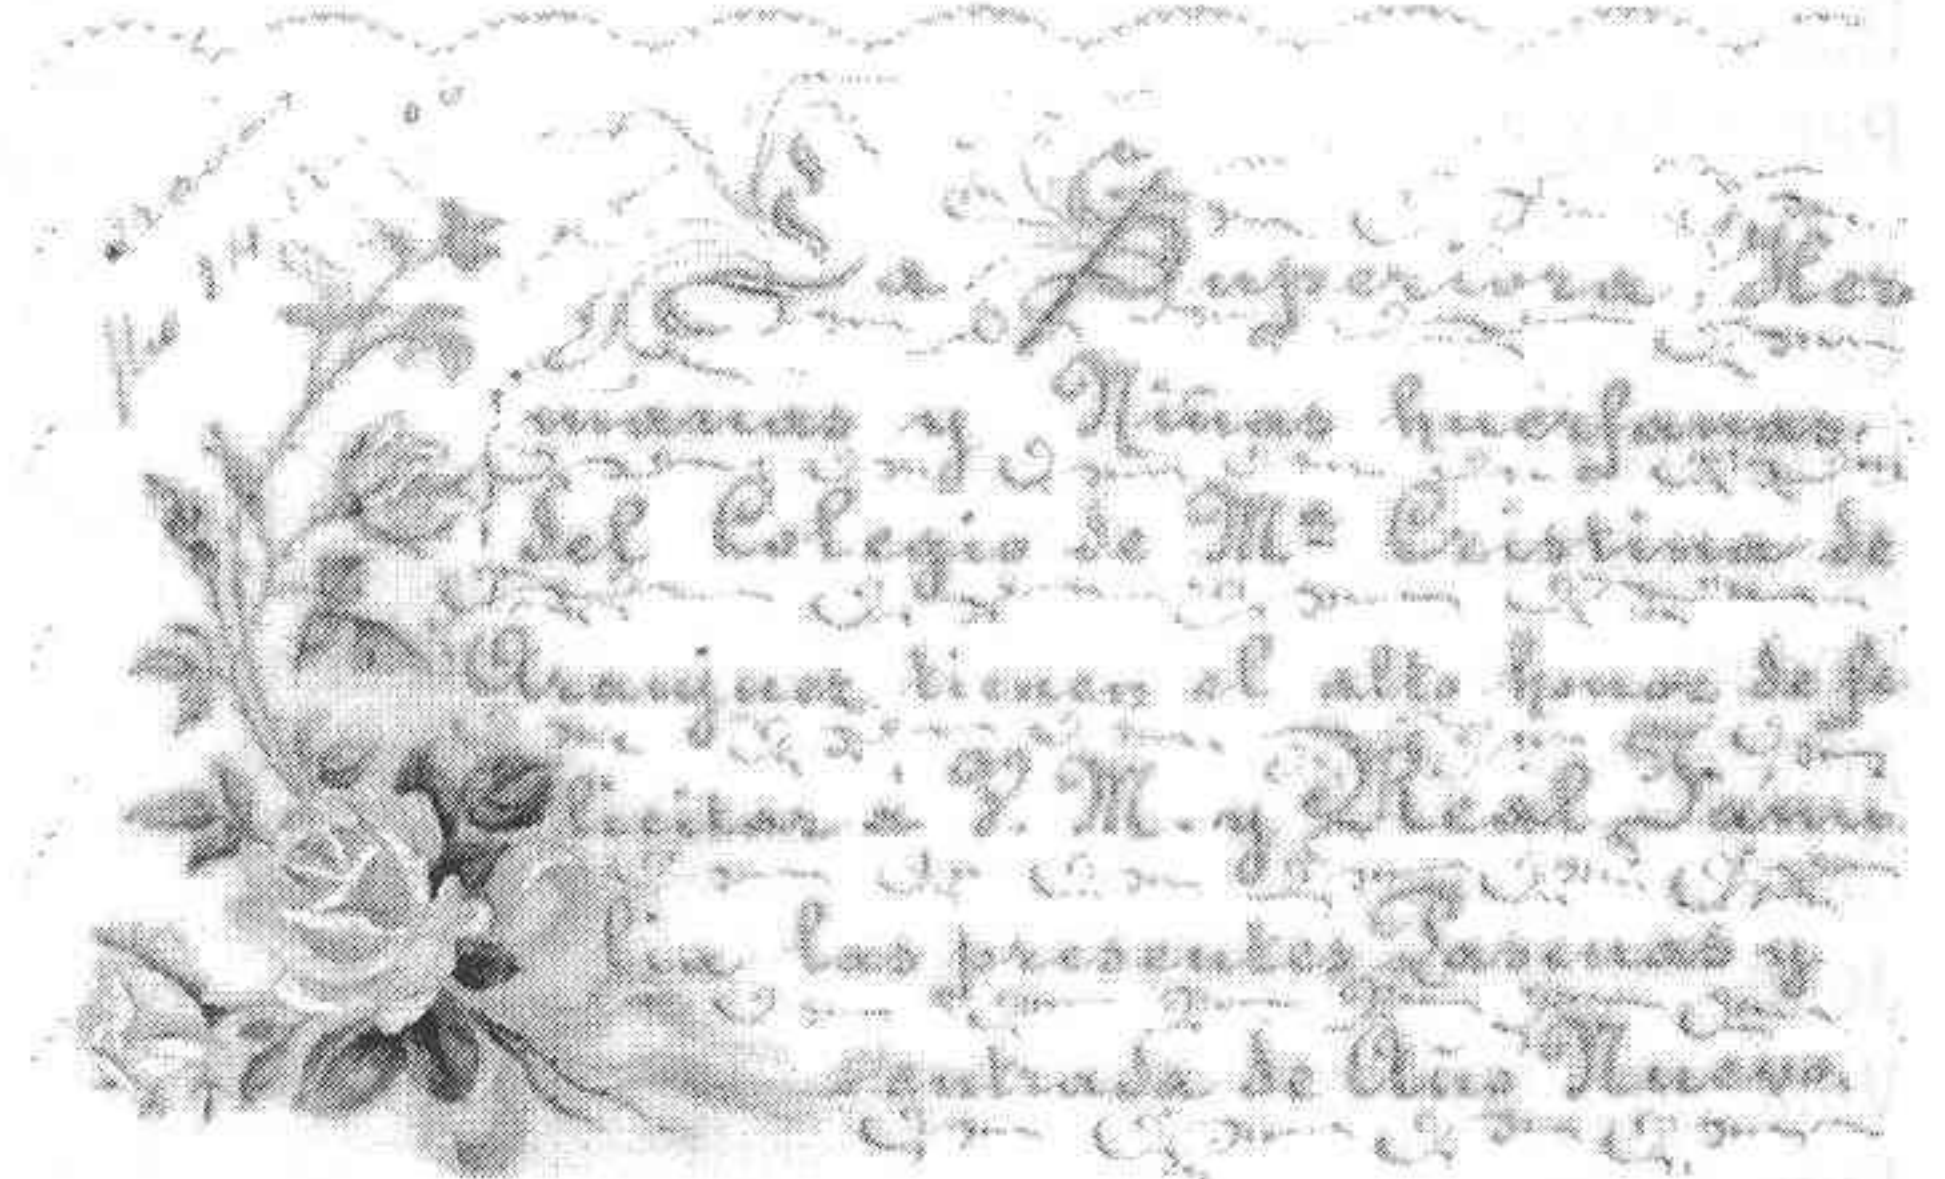 La Superiora, Her
manas y Niñas huerfanas,
del Colegio de Mª Cristina de
Aranjuez tienen el alto honor de fe
licitar a V. M. y Real Fami
lia las presentes Pascuas y
entrada de Año Nuevo.